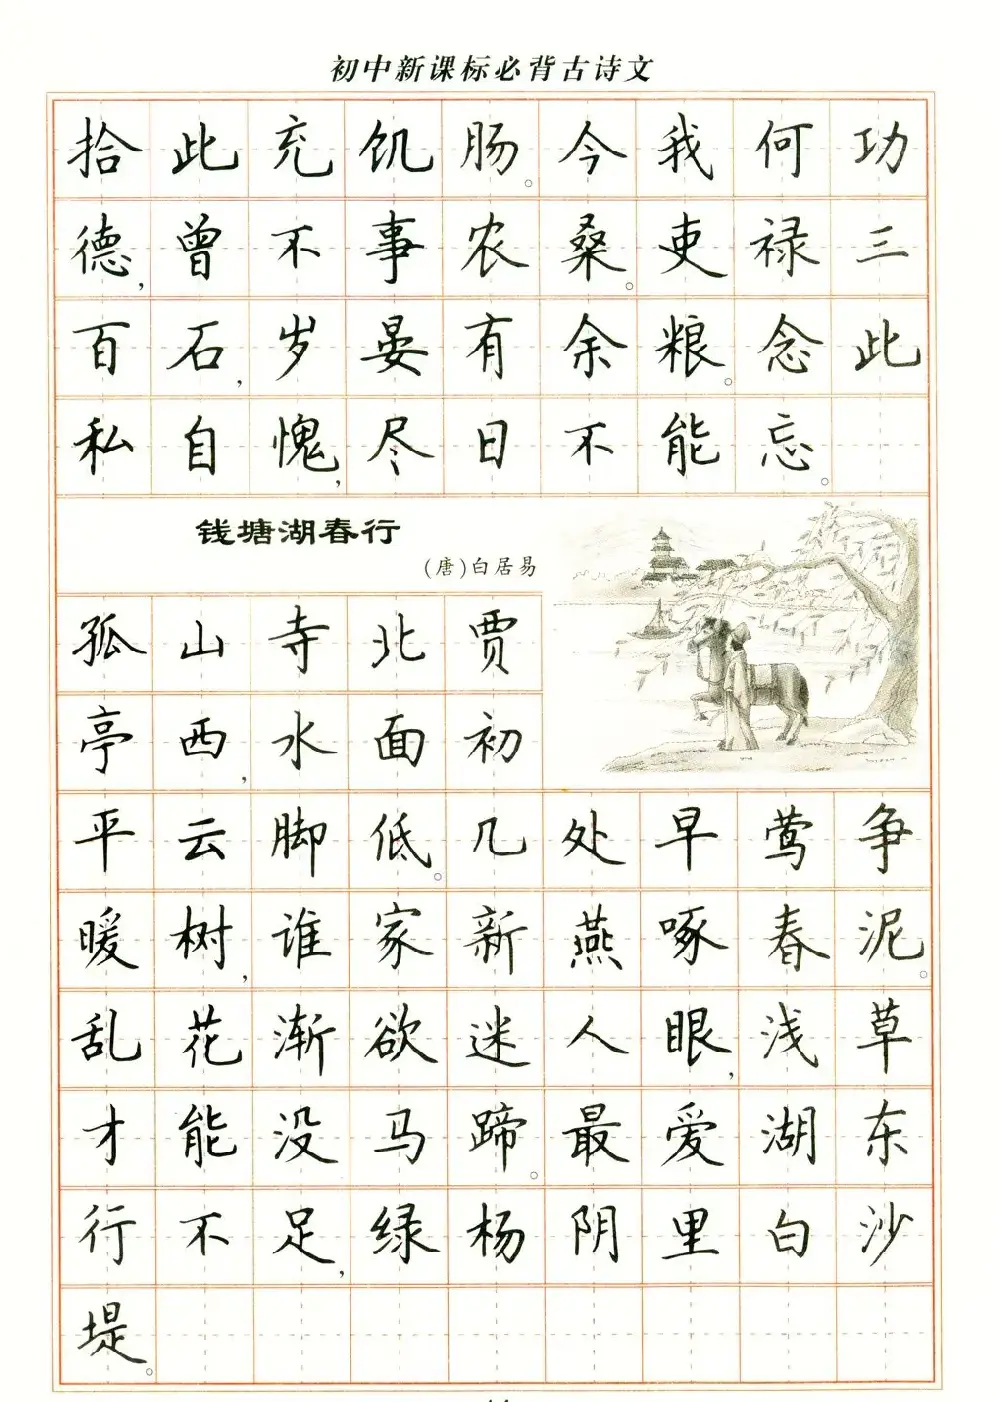 初中新课标必背古诗文
拾此充饥肠。今我何功
德,曾不事农桑。吏禄三
百石,岁晏有余粮。念此
私自愧,尽日不能忘。
钱塘湖春行
(唐)白居易
孤山寺北贾
亭西,水面初
平云脚低。几处早莺争
暖树,谁家新燕啄春泥。
乱花渐欲迷人眼,浅草
才能没马蹄。最爱湖东
行不足,绿杨阴里白沙
堤。